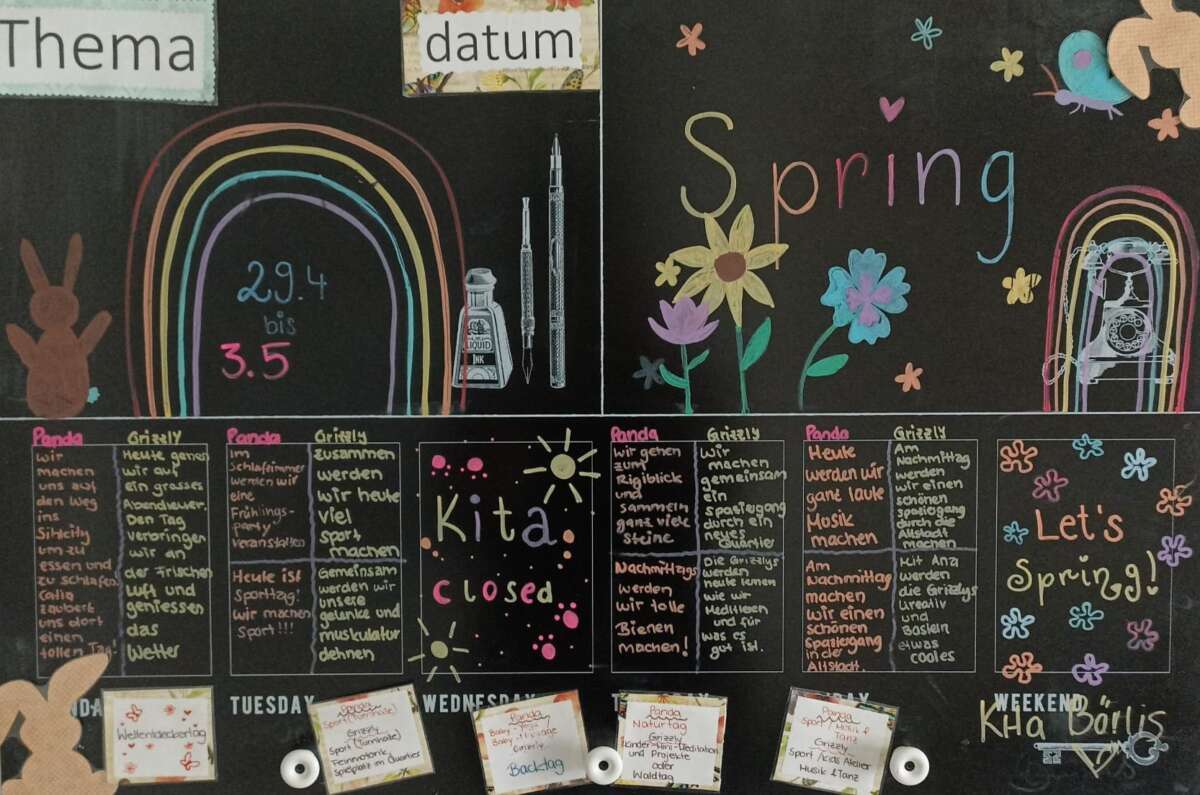 Thema
datum
29.4
bis
3.5
LIQUID
INK
Spring
Panda
wir
machen
uns auf
den Weg
ins
Sihlcity
um zu
essen und
zu schlafen
Catia
zaubert
uns dort
einen
tollen Tag!
Grizzly
Heute gehen
wir auf
ein grosses
Abendheuer.
Den Tag
verbringen
wir an
der Frischen
Luft und
geniessen
das
Wetter
Panda
Im
Schlafzimmer
werden wir
eine
Frühlings-
party
veranstalten
Heute ist
Sporttag!
wir machen
Sport!!!
Grizzly
zusammen
werden
wir heute
viel
sport
machen
Gemeinsam
werden wir
unsere
gelenke und
muskulatur
dehnen
Kita
closed
Panda
wir gehen
zum
Rigiblick
und
sammeln
ganz viele
steine
Nachmittags
werden
wir tolle
Bienen
machen!
Grizzly
wir
machen
gemeinsam
ein
spaziegang
durch ein
neues
Quartier
Die Grizzlys
werden
heute lernen
wie wir
Meditieren
und für
was es
gut ist.
Panda
Heute
werden wir
ganz laute
Musik
machen
Am
Nachmittag
machen
wir einen
schönen
spaziegang
in der
Altstadt.
Grizzly
Am
Nachmittag
werden
wir einen
schönen
spaziegang
durch die
Altstadt
machen
Mit Ana
werden
die Grizzlys
Kreativ
und
Basteln
etwas
cooles
Let's
Spring!
TUESDAY
WEDNESDAY
WEEKEND
Kita Bärlis
Weltentdeckertag
Panda
Sport (Turnhalle)
Grizzly
Sport (Turnhalle)
Feinmotorik
Spielplatz im Quartier
Panda
Grizzly
Backtag
Panda
Naturtag
Grizzly
Kinder-Mini-Meditation
und Projekte
oder
Waldtag
Panda
Sport, Musik &
Tanz
Grizzly
Sport / Kids Atelier
Musik & Tanz